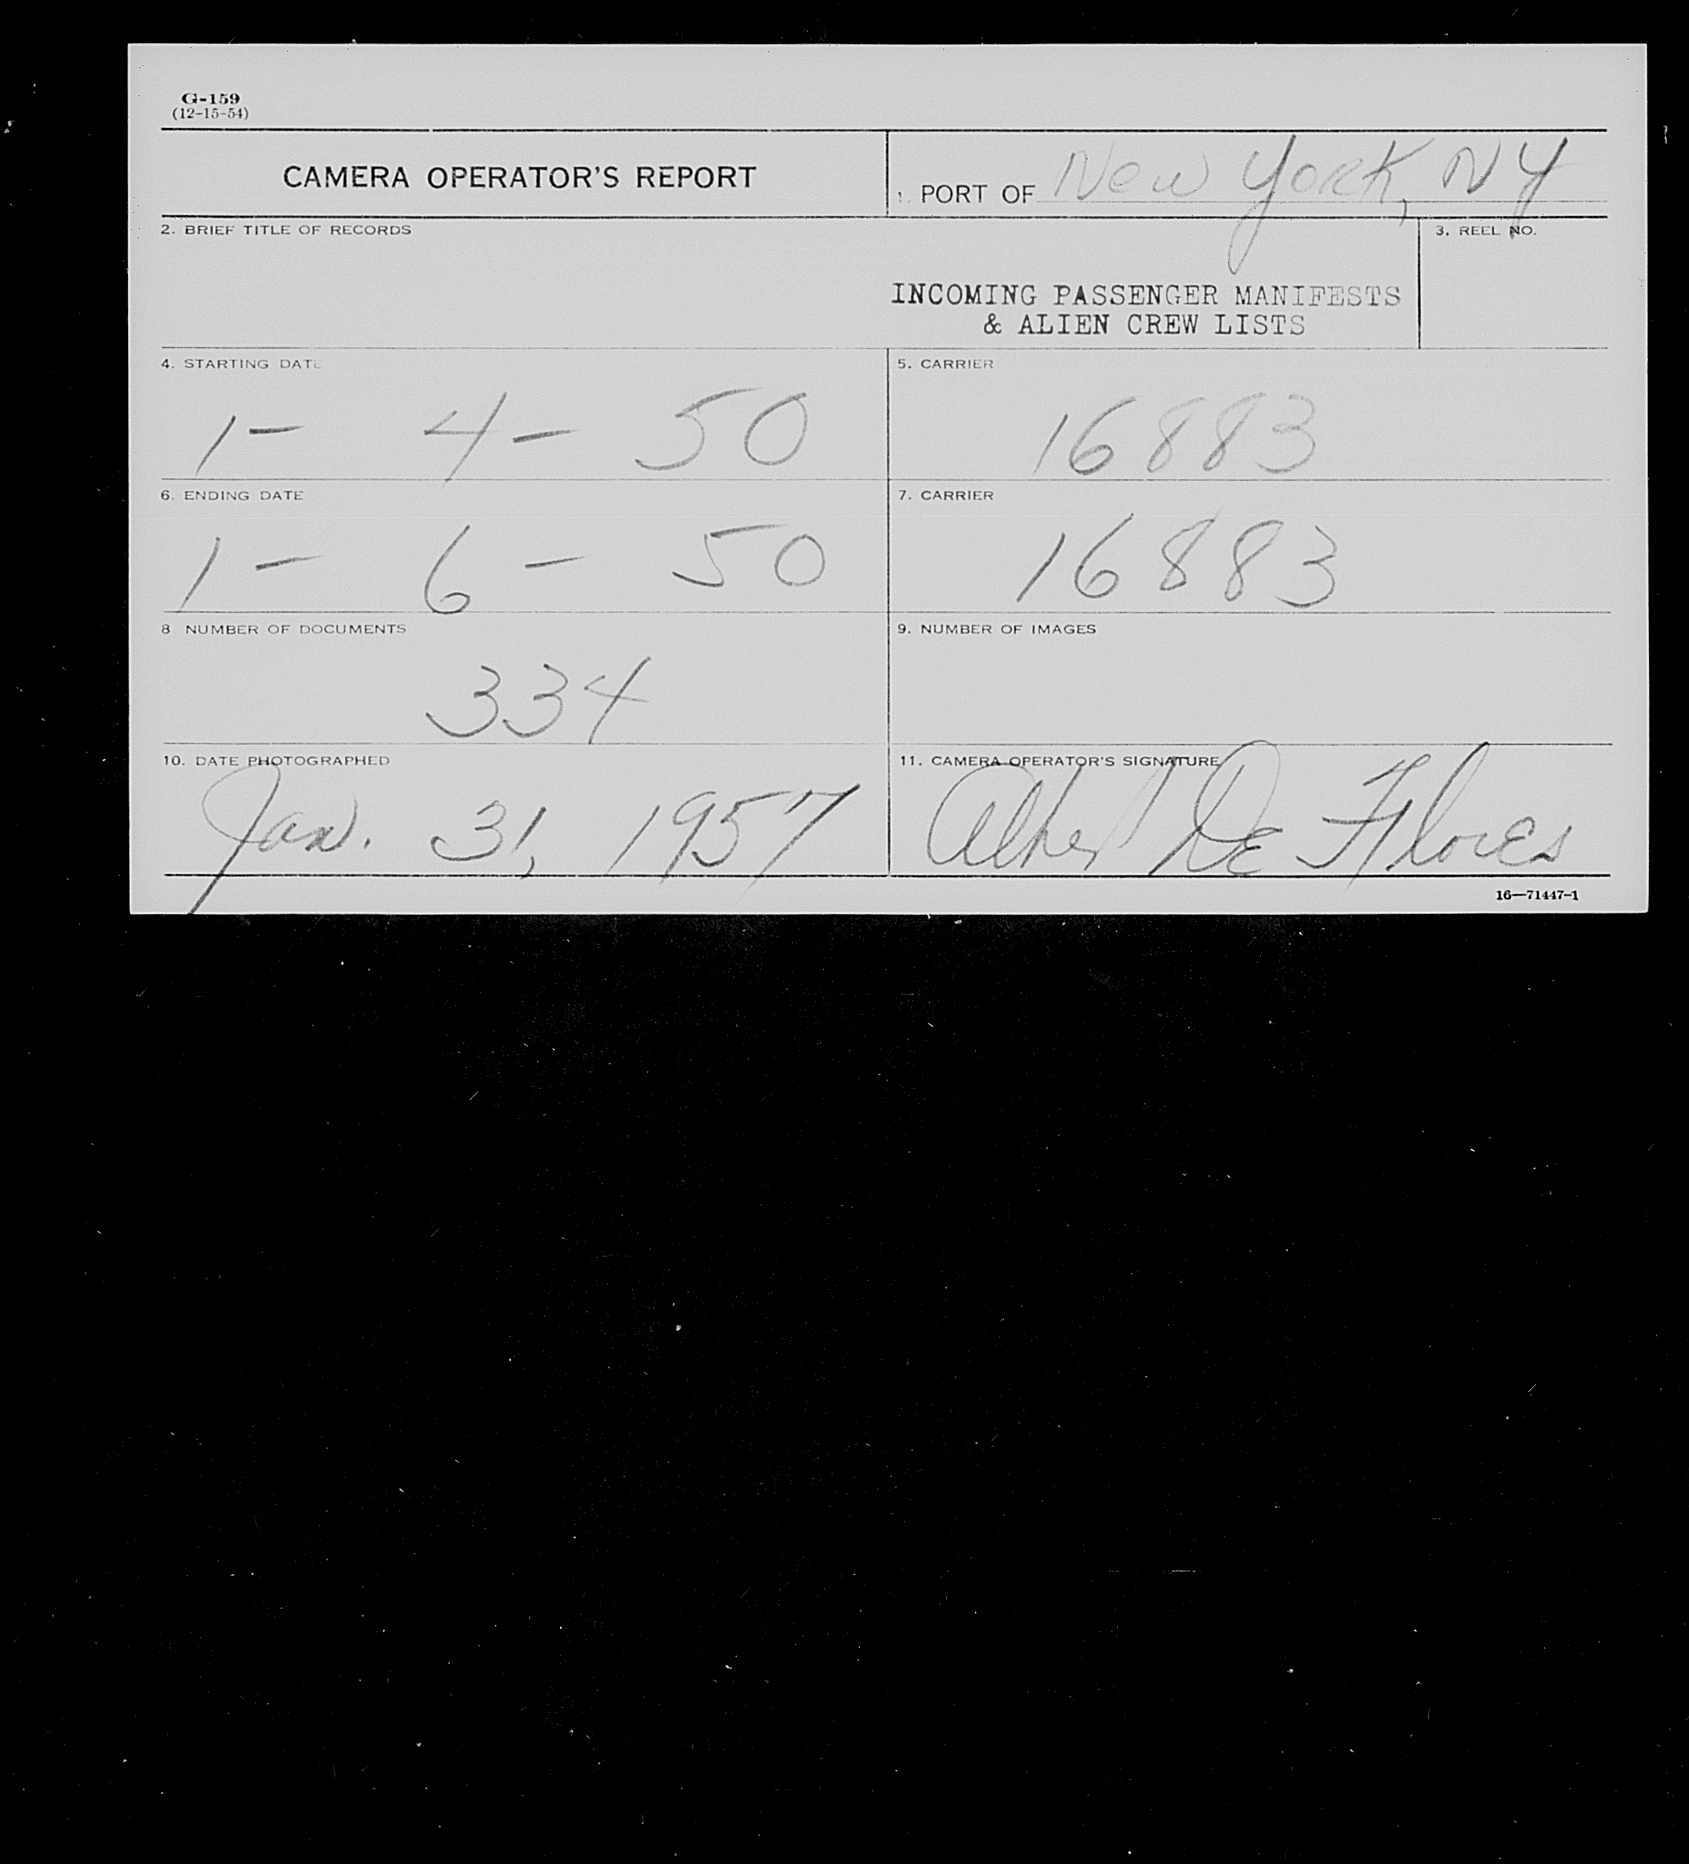 G-159
(12-15-54)
CAMERA OPERATOR'S REPORT
1. PORT OF New York, NY
2. BRIEF TITLE OF RECORDS
3. REEL NO.
INCOMING PASSENGER MANIFESTS
& ALIEN CREW LISTS
4. STARTING DATE
1- 4- 50
5. CARRIER
16883
6. ENDING DATE
1- 6- 50
7. CARRIER
16883
8 NUMBER OF DOCUMENTS
334
9. NUMBER OF IMAGES
10. DATE PHOTOGRAPHED
Jan. 31, 1957
11. CAMERA OPERATOR'S SIGNATURE
De Flores
16—71447-1